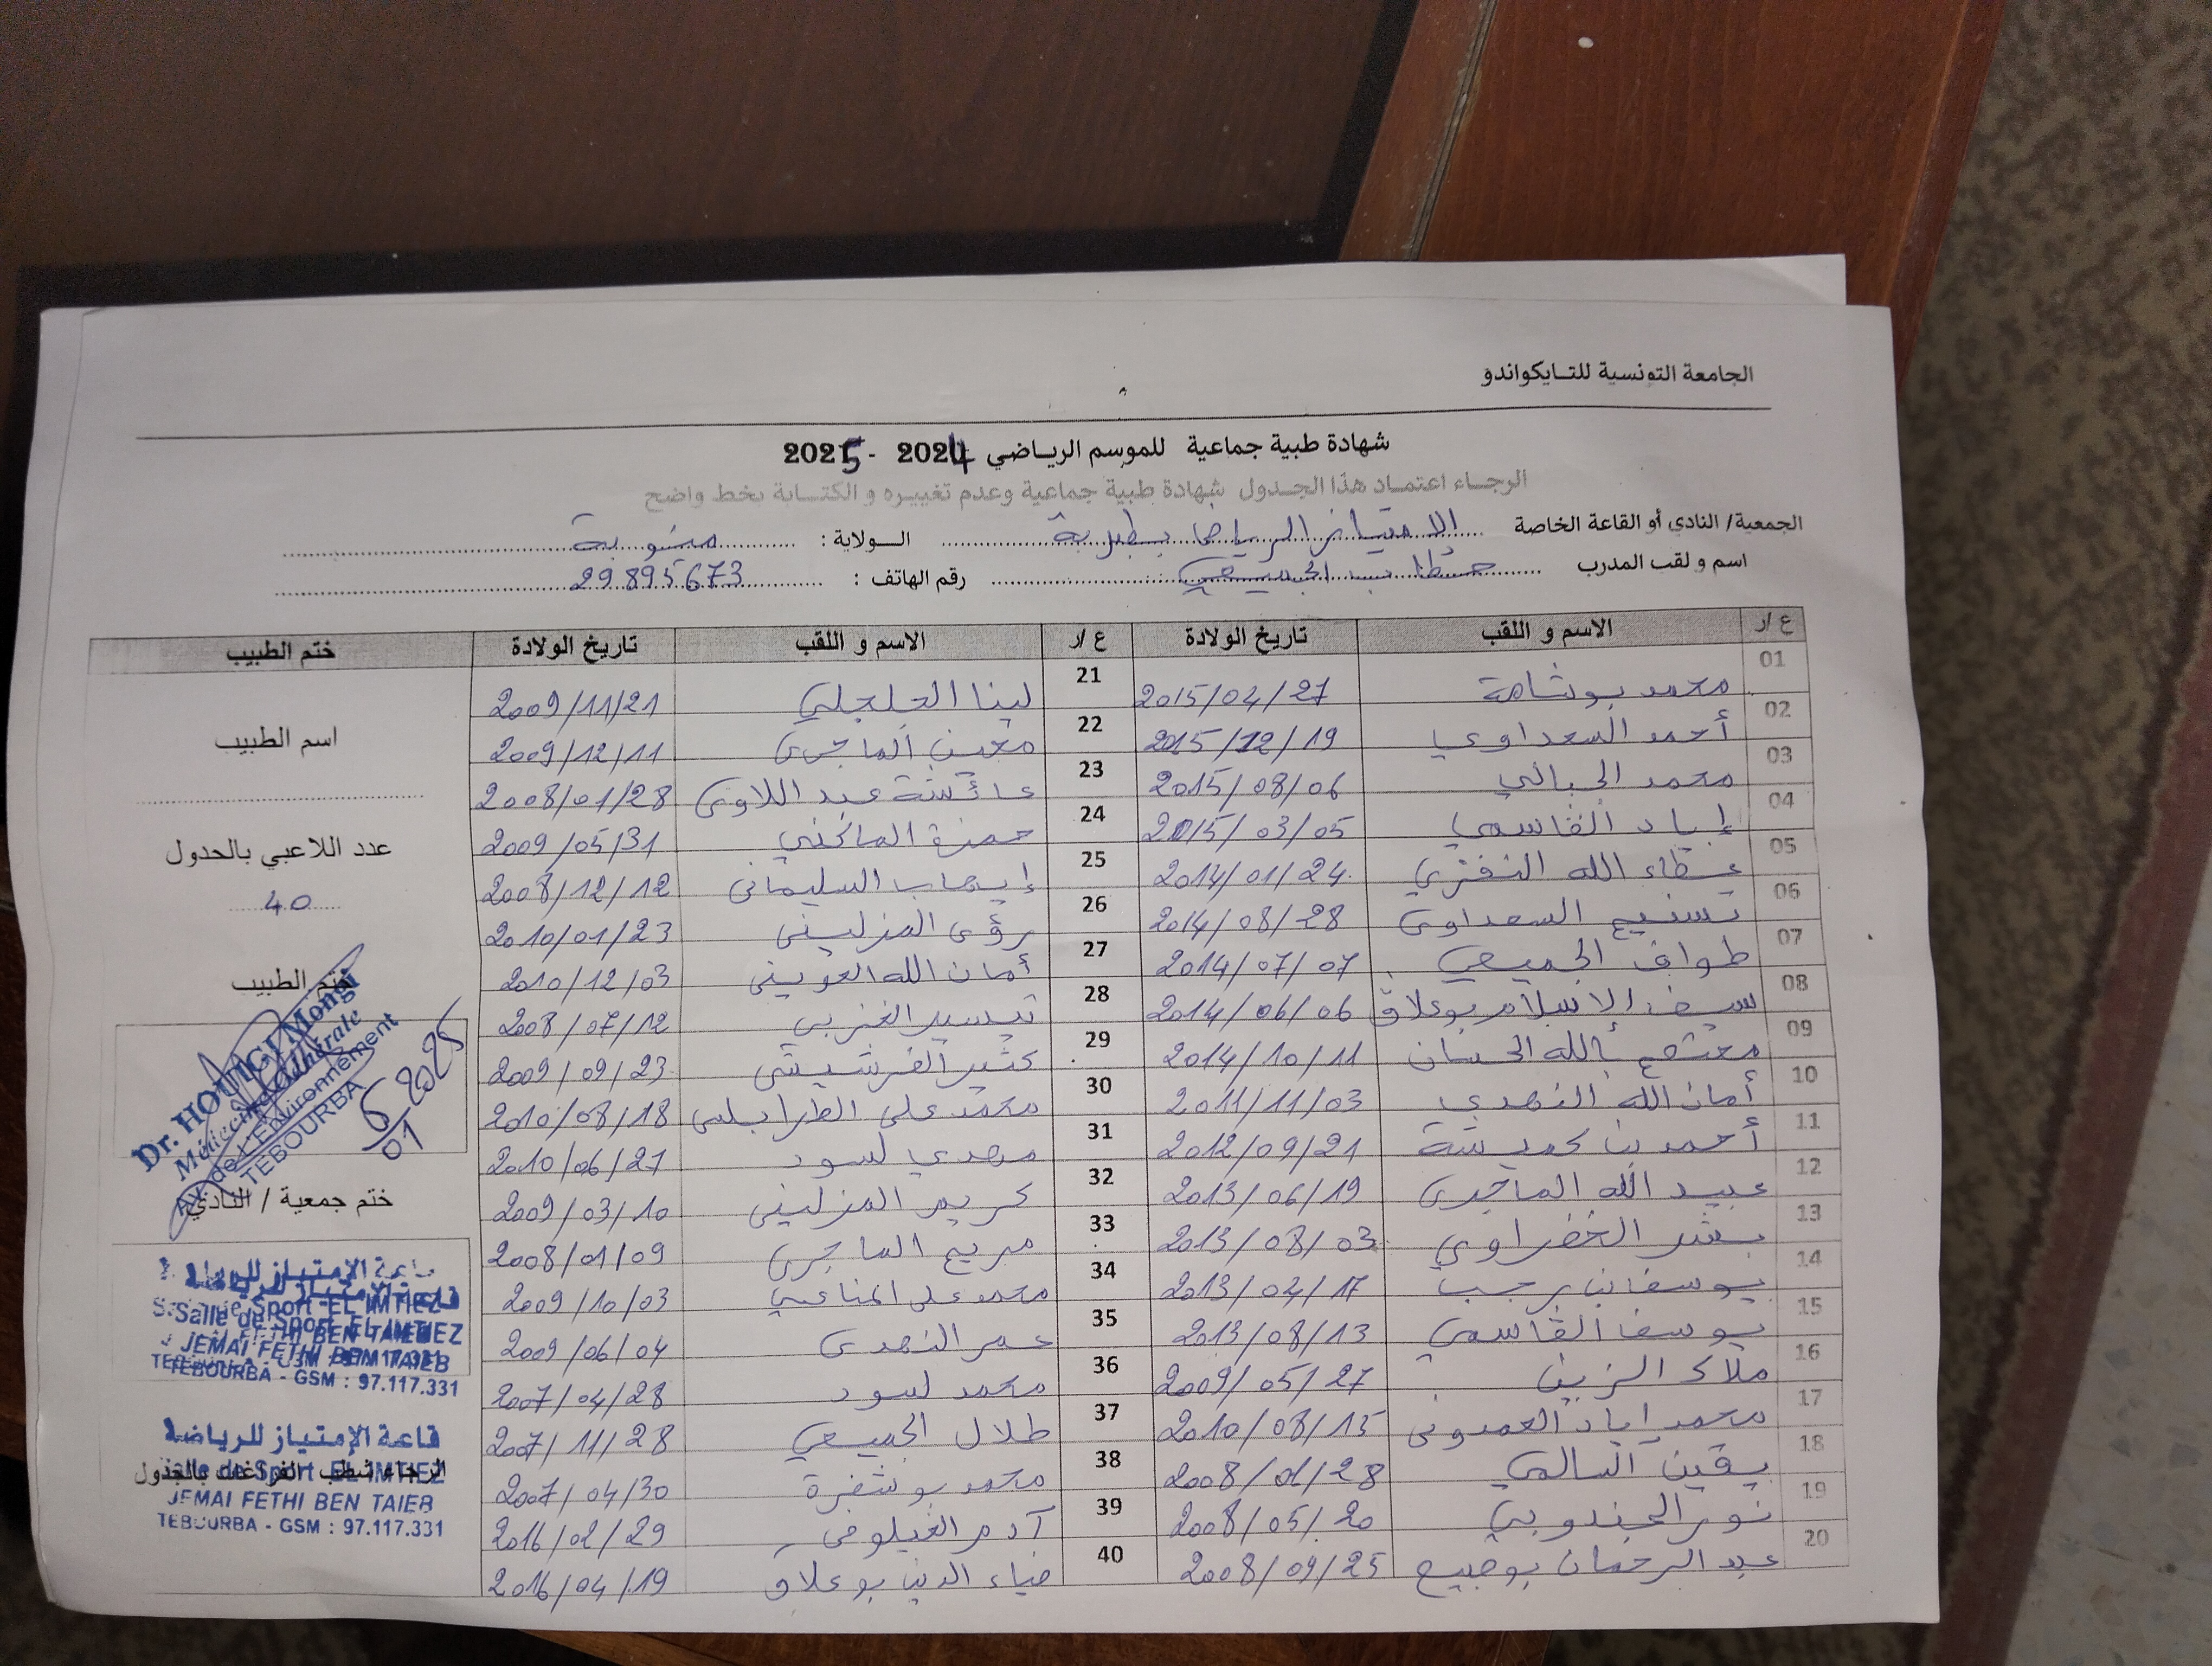 الجامعة التونسية للتايكواندو
شهادة طبية جماعية للموسم الرياضي 2024 - 2025
الرجاء اعتماد هذا الجدول شهادة طبية جماعية وعدم تغييره و الكتابة بخط واضح
الجمعية/ النادي أو القاعة الخاصة الامتياز الرياضي بطبربة الولاية : منوبة
اسم و لقب المدرب خطاب الجميعي رقم الهاتف : 29895673
ع/ر الاسم و اللقب تاريخ الولادة ع/ر الاسم و اللقب تاريخ الولادة ختم الطبيب
01 محمد بوشامة 2015/04/27 21 لينا الجلجلي 2009/11/21
02 أحمد السعداوي 2015/12/19 22 معين الماجري 2009/12/11
03 محمد الجبالي 2015/08/06 23 عائشة عبد اللاوي 2008/01/28
04 إياد القاسمي 2015/03/05 24 حمزة 2009/05/31
05 عطاء الله النفزي 2014/01/24 25 إيهاب السليماني 2008/12/12
06 تسنيم السعداوي 2014/08/28 26 رؤى المنزليني 2010/01/23
07 طواف الجميعي 2014/07/07 27 أمان الله العويني 2010/12/03
08 سيف الاسلام بوعلاق 2014/06/06 28 تيسير الغزبي 2008/07/12
09 معتصم بالله الحسان 2014/10/11 29 كثير الفرشيشي 2009/09/23
10 أمان الله النهدي 2011/11/03 30 محمد علي الطرابلسي 2010/08/18
11 أحمد بن حميدة 2012/09/21 31 مهدي لسود 2010/06/27
12 عبيد الله الماجري 2013/06/19 32 كريم المنزليني 2009/03/10
13 بشر الخضراوي 2013/08/03 33 مريم الماجري 2008/01/09
14 يوسف بن رجب 2013/04/17 34 محمد علي المناعي 2009/10/03
15 يوسف القاسمي 2013/08/13 35 عمر النهدي 2009/06/04
16 ملاك الزين 2009/05/27 36 محمد لسود 2007/04/28
17 محمد إياد العمدوني 2010/08/15 37 طلال الجميعي 2007/11/28
18 يقين السالمي 2008/01/28 38 محمد بوشفرة 2007/04/30
19 نور الجندوبي 2008/05/20 39 آدم الغيلوفي 2016/02/29
20 عبد الرحمان 2008/09/25 40 ضياء الدين بوعلاق 2016/04/19
اسم الطبيب
عدد اللاعبي بالجدول
40
ختم الطبيب
Dr. HOUIGI Mongi
Médecine Générale
Av. de L'Environnement
TEBOURBA
6/01 2025
ختم جمعية / النادي
قاعة الإمتياز للرياضة
Salle de Sport EL IMTIEZ
JEMAI FETHI BEN TAIEB
TEBOURBA - GSM : 97.117.331
قاعة الإمتياز للرياضة
الرجاء شطب الفراغات بالجدول
Salle de Sport EL IMTIEZ
JEMAI FETHI BEN TAIEB
TEBOURBA - GSM : 97.117.331